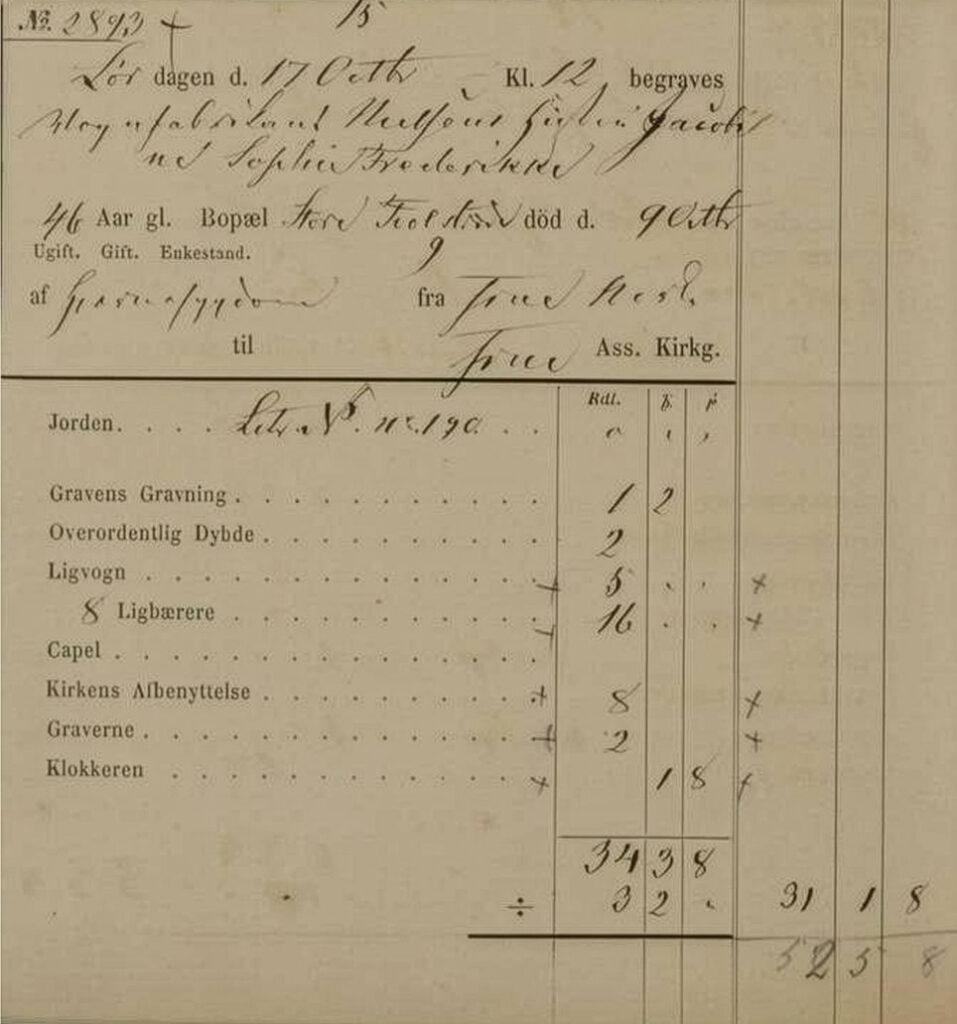 No. 2893 + 15
Lör dagen d. 17 Octbr Kl. 12 begraves
Vognfabrikant Jacobi
ne Sophie Frederikke
46 Aar gl. Bopæl Store Fiolstræde död d. 9 Octbr
Ugift. Gift. Enkestand. 9
af fra Frue
til Frue Ass. Kirkg.
Rdl. ꝟ ß
Jorden. . . . . Litr. N. nr. 190. . .
Gravens Gravning . . . . . . . . . . . 1 2
Overordentlig Dybde . . . . . . . . . . 2
Ligvogn . . . . . . . . . . . . . . + 5 . . +
8 Ligbærere . . . . . . . . . . . + 16 . . +
Capel . . . . . . . . . . . . . . .
Kirkens Afbenyttelse . . . . . . . . . . + 8 +
Graverne . . . . . . . . . . . . . . + 2 +
Klokkeren . . . . . . . . . . . . . + 1 8 +
34 3 8
÷ 3 2 " 31 1 8
52 5 8